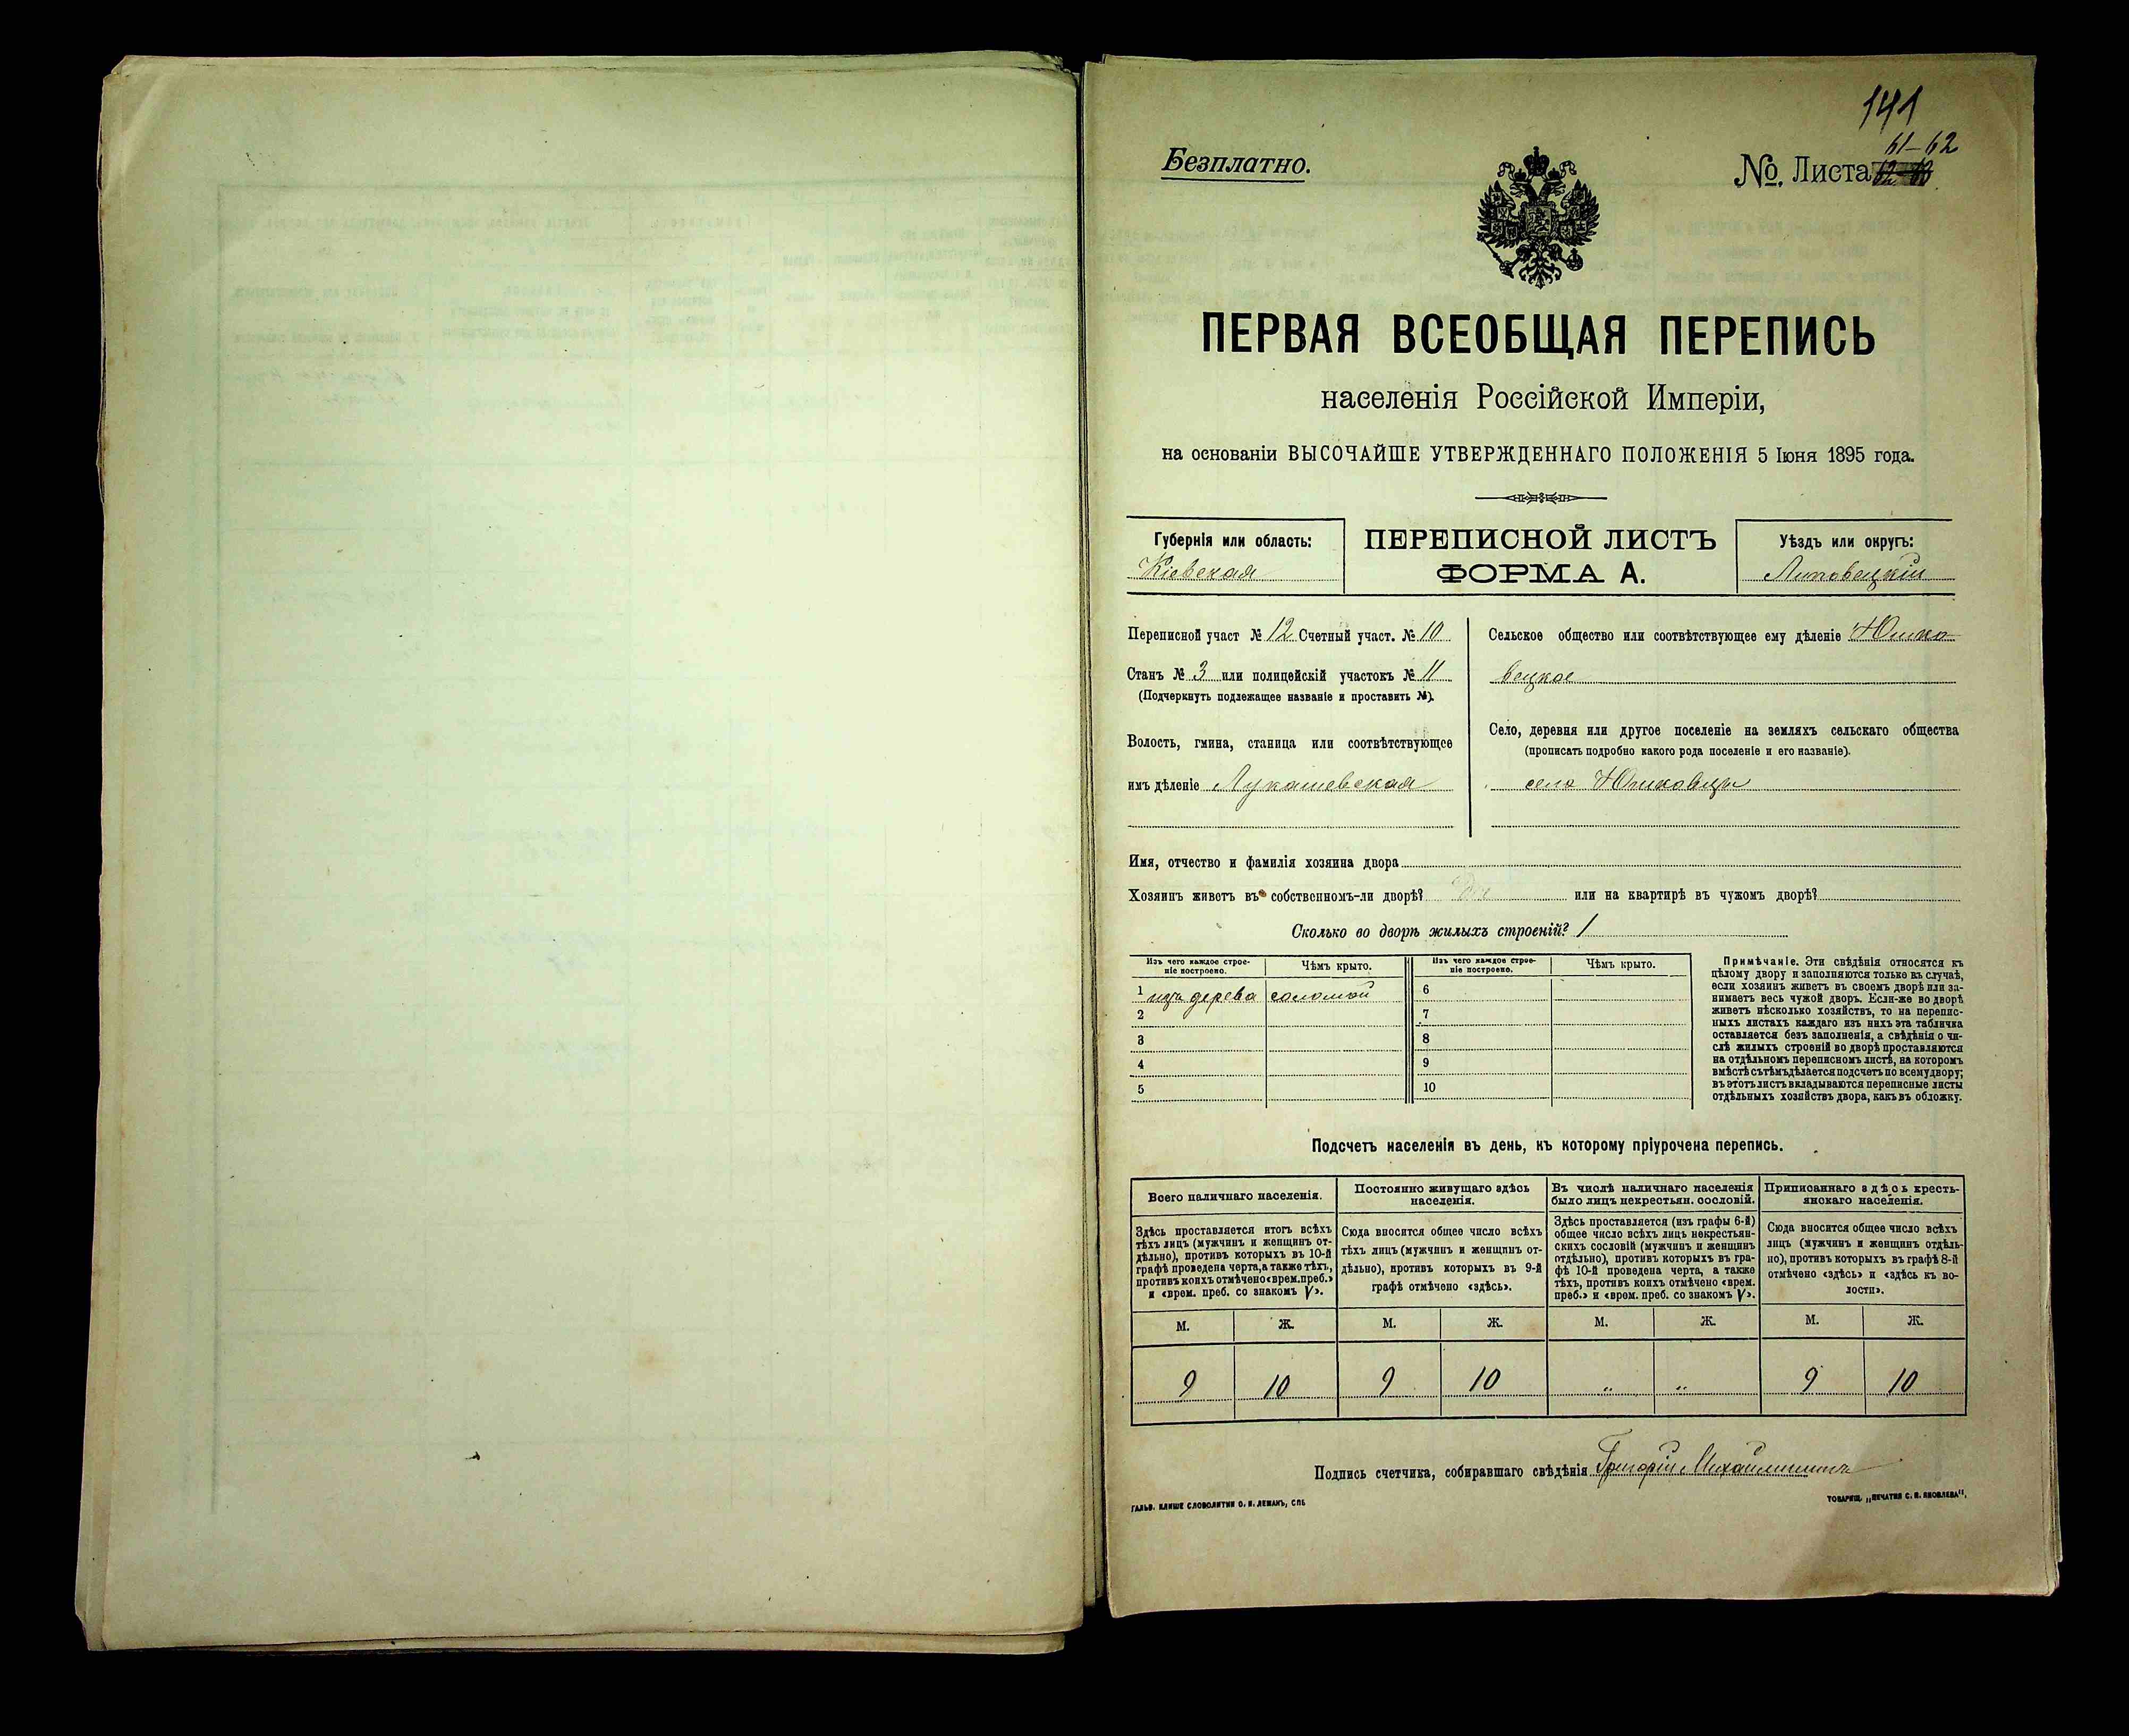 141
Безплатно.
61-62
№ Листа
ПЕРВАЯ ВСЕОБЩАЯ ПЕРЕПИСЬ
населенія Россійской Имперіи,
на основаніи ВЫСОЧАЙШЕ УТВЕРЖДЕННАГО ПОЛОЖЕНІЯ 5 Іюня 1895 года.
Губернія или область:
Кіевская
ПЕРЕПИСНОЙ ЛИСТЪ
ФОРМА А.
Уѣздъ или округъ:
Липовецкій
Переписной участ № 12 Счетный участ. № 10
Станъ № 3 или полицейскій участокъ № 11
(Подчеркнуть подлежащее названіе и проставить №).
Волость, гмина, станица или соотвѣтствующее
имъ дѣленіе Лукашевская
Сельское общество или соотвѣтствующее ему дѣленіе Юшко
вецкое
Село, деревня или другое поселеніе на земляхъ сельскаго общества
(прописать подробно какого рода поселеніе и его названіе).
село Юшковцы
Имя, отчество и фамилія хозяина двора
Хозяинъ живетъ въ собственномъ-ли дворѣ? Да или на квартирѣ въ чужомъ дворѣ?
Сколько во дворѣ жилыхъ строеній? 1
Изъ чего каждое строе-
ніе построено.
Чѣмъ крыто.
Изъ чего каждое строе-
ніе построено.
Чѣмъ крыто.
1 изъ дерева соломой
2
3
4
5
6
7
8
9
10
Примѣчаніе. Эти свѣдѣнія относятся къ
цѣлому двору и заполняются только въ случаѣ,
если хозяинъ живетъ въ своемъ дворѣ или за-
нимаетъ весь чужой дворъ. Если-же во дворѣ
живетъ нѣсколько хозяйствъ, то на перепис-
ныхъ листахъ каждаго изъ нихъ эта табличка
оставляется безъ заполненія, а свѣдѣнія о чи-
слѣ жилыхъ строеній во дворѣ проставляются
на отдѣльномъ переписномъ листѣ, на которомъ
вмѣстѣ съ тѣмъ дѣлается подсчетъ по всему двору;
въ этотъ листъ вкладываются переписные листы
отдѣльныхъ хозяйствъ двора, какъ въ обложку.
Подсчетъ населенія въ день, къ которому пріурочена перепись.
Всего наличнаго населенія.
Здѣсь проставляется итогъ всѣхъ
тѣхъ лицъ (мужчинъ и женщинъ от-
дѣльно), противъ которыхъ въ 10-й
графѣ проведена черта, а также тѣхъ,
противъ коихъ отмѣчено «врем. преб.»
и «врем. преб. со знакомъ V».
Постоянно живущаго здѣсь
населенія.
Сюда вносится общее число всѣхъ
тѣхъ лицъ (мужчинъ и женщинъ от-
дѣльно), противъ которыхъ въ 9-й
графѣ отмѣчено «здѣсь».
Въ числѣ наличнаго населенія
было лицъ некрестьян. сословій.
Здѣсь проставляется (изъ графы 6-й)
общее число всѣхъ лицъ некрестьян-
скихъ сословій (мужчинъ и женщинъ
отдѣльно), противъ которыхъ въ гра-
фѣ 10-й проведена черта, а также
тѣхъ, противъ коихъ отмѣчено «врем.
преб.» и «врем. преб. со знакомъ V».
Приписаннаго здѣсь кресть-
янскаго населенія.
Сюда вносится общее число всѣхъ
лицъ (мужчинъ и женщинъ отдѣль-
но), противъ которыхъ въ графѣ 8-й
отмѣчено «здѣсь» и «здѣсь къ во-
лости».
М. Ж. М. Ж. М. Ж. М. Ж.
9 10 9 10 „ „ 9 10
Подпись счетчика, собиравшаго свѣдѣнія Григорій
ГАЛЬВ. КЛИШЕ СЛОВОЛИТНИ О. И. ЛЕМАНЪ, СПБ
ТОВАРИЩ. „ПЕЧАТНЯ С. П. ЯКОВЛЕВА“.